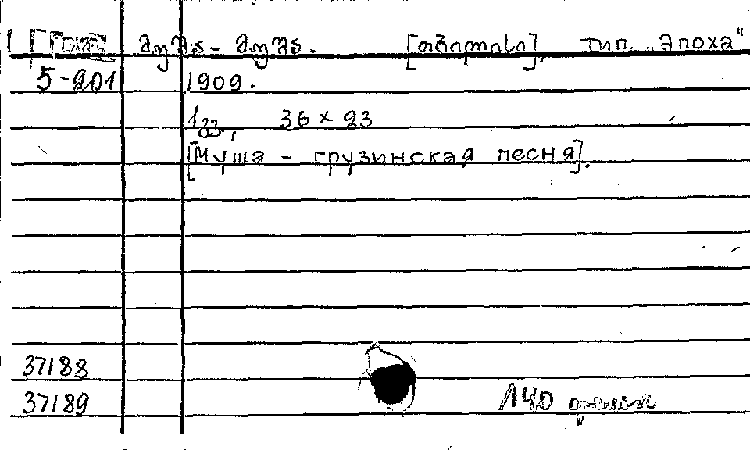 მუშა - მუშა. [თბილისი], тип. "Эпоха"
5-901 1909.
1 გვ., 36 × 23
[Муша - грузинская песня].
37188
37189 140